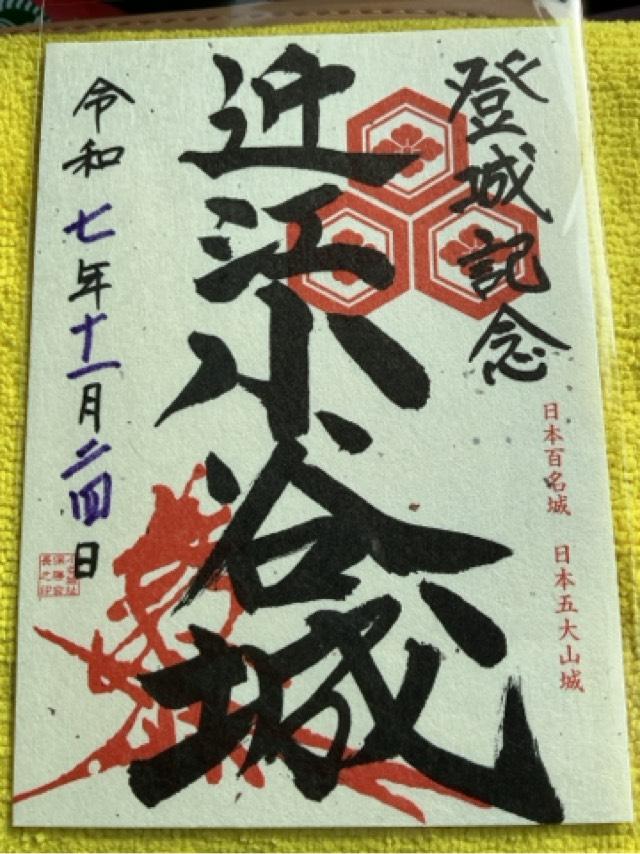 登城記念
日本百名城 日本五大山城
近江小谷城
令和七年十一月二四日